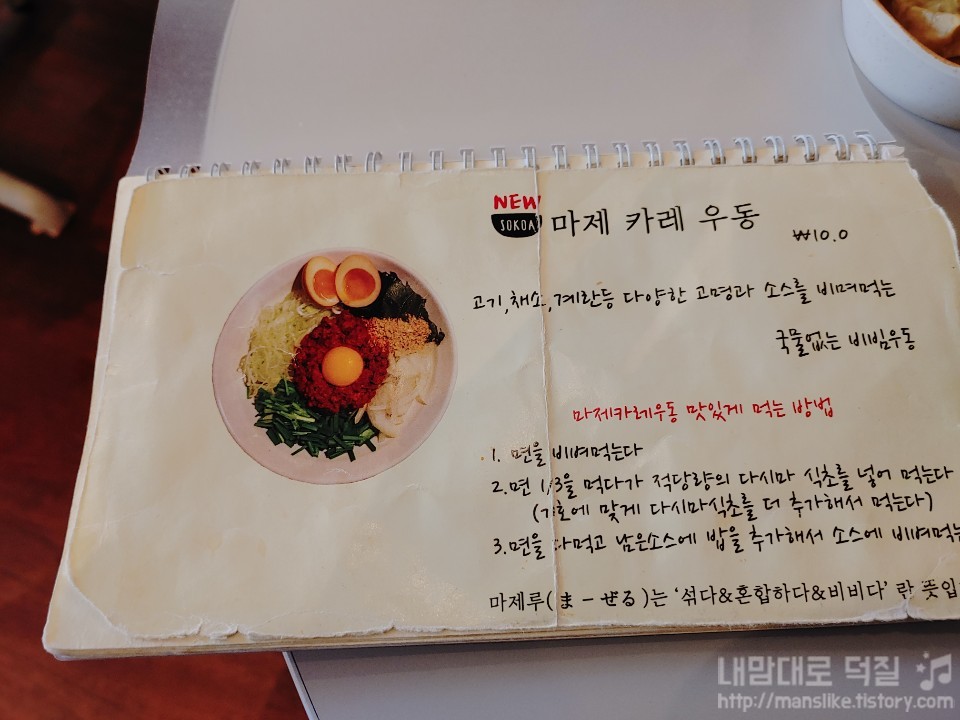 NEW
SOKOA
마제 카레 우동
₩10.0
고기,채소,계란등 다양한 고명과 소스를 비벼먹는
국물없는 비빔우동
마제카레우동 맛있게 먹는 방법
1. 면을 비벼먹는다
2.면 1/3을 먹다가 적당량의 다시마 식초를 넣어 먹는다
(기호에 맞게 다시마식초를 더 추가해서 먹는다)
3.면을 다먹고 남은소스에 밥을 추가해서 소스에 비벼먹는
마제루(まーぜる)는 '섞다&혼합하다&비비다' 란 뜻입
내맘대로 덕질
http://manslike.tistory.com